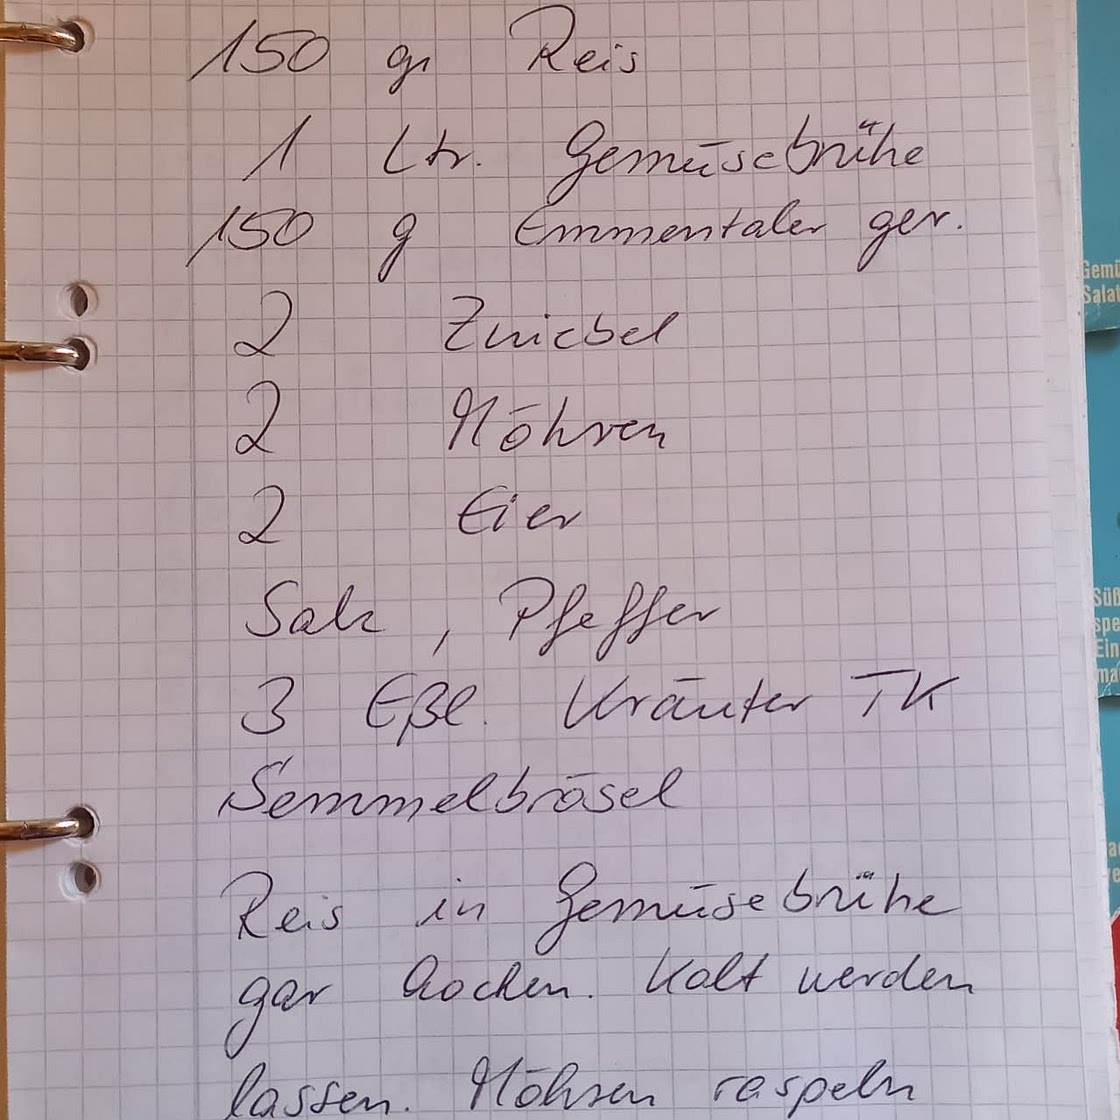 150 gr Reis
1 Ltr. Gemüsebrühe
150 g Emmentaler ger.
2 Zwiebel
2 Möhren
2 Eier
Salz, Pfeffer
3 Eßl. Kräuter TK
Semmelbrösel
Reis in Gemüsebrühe
gar kochen. Kalt werden
lassen. Möhren raspeln